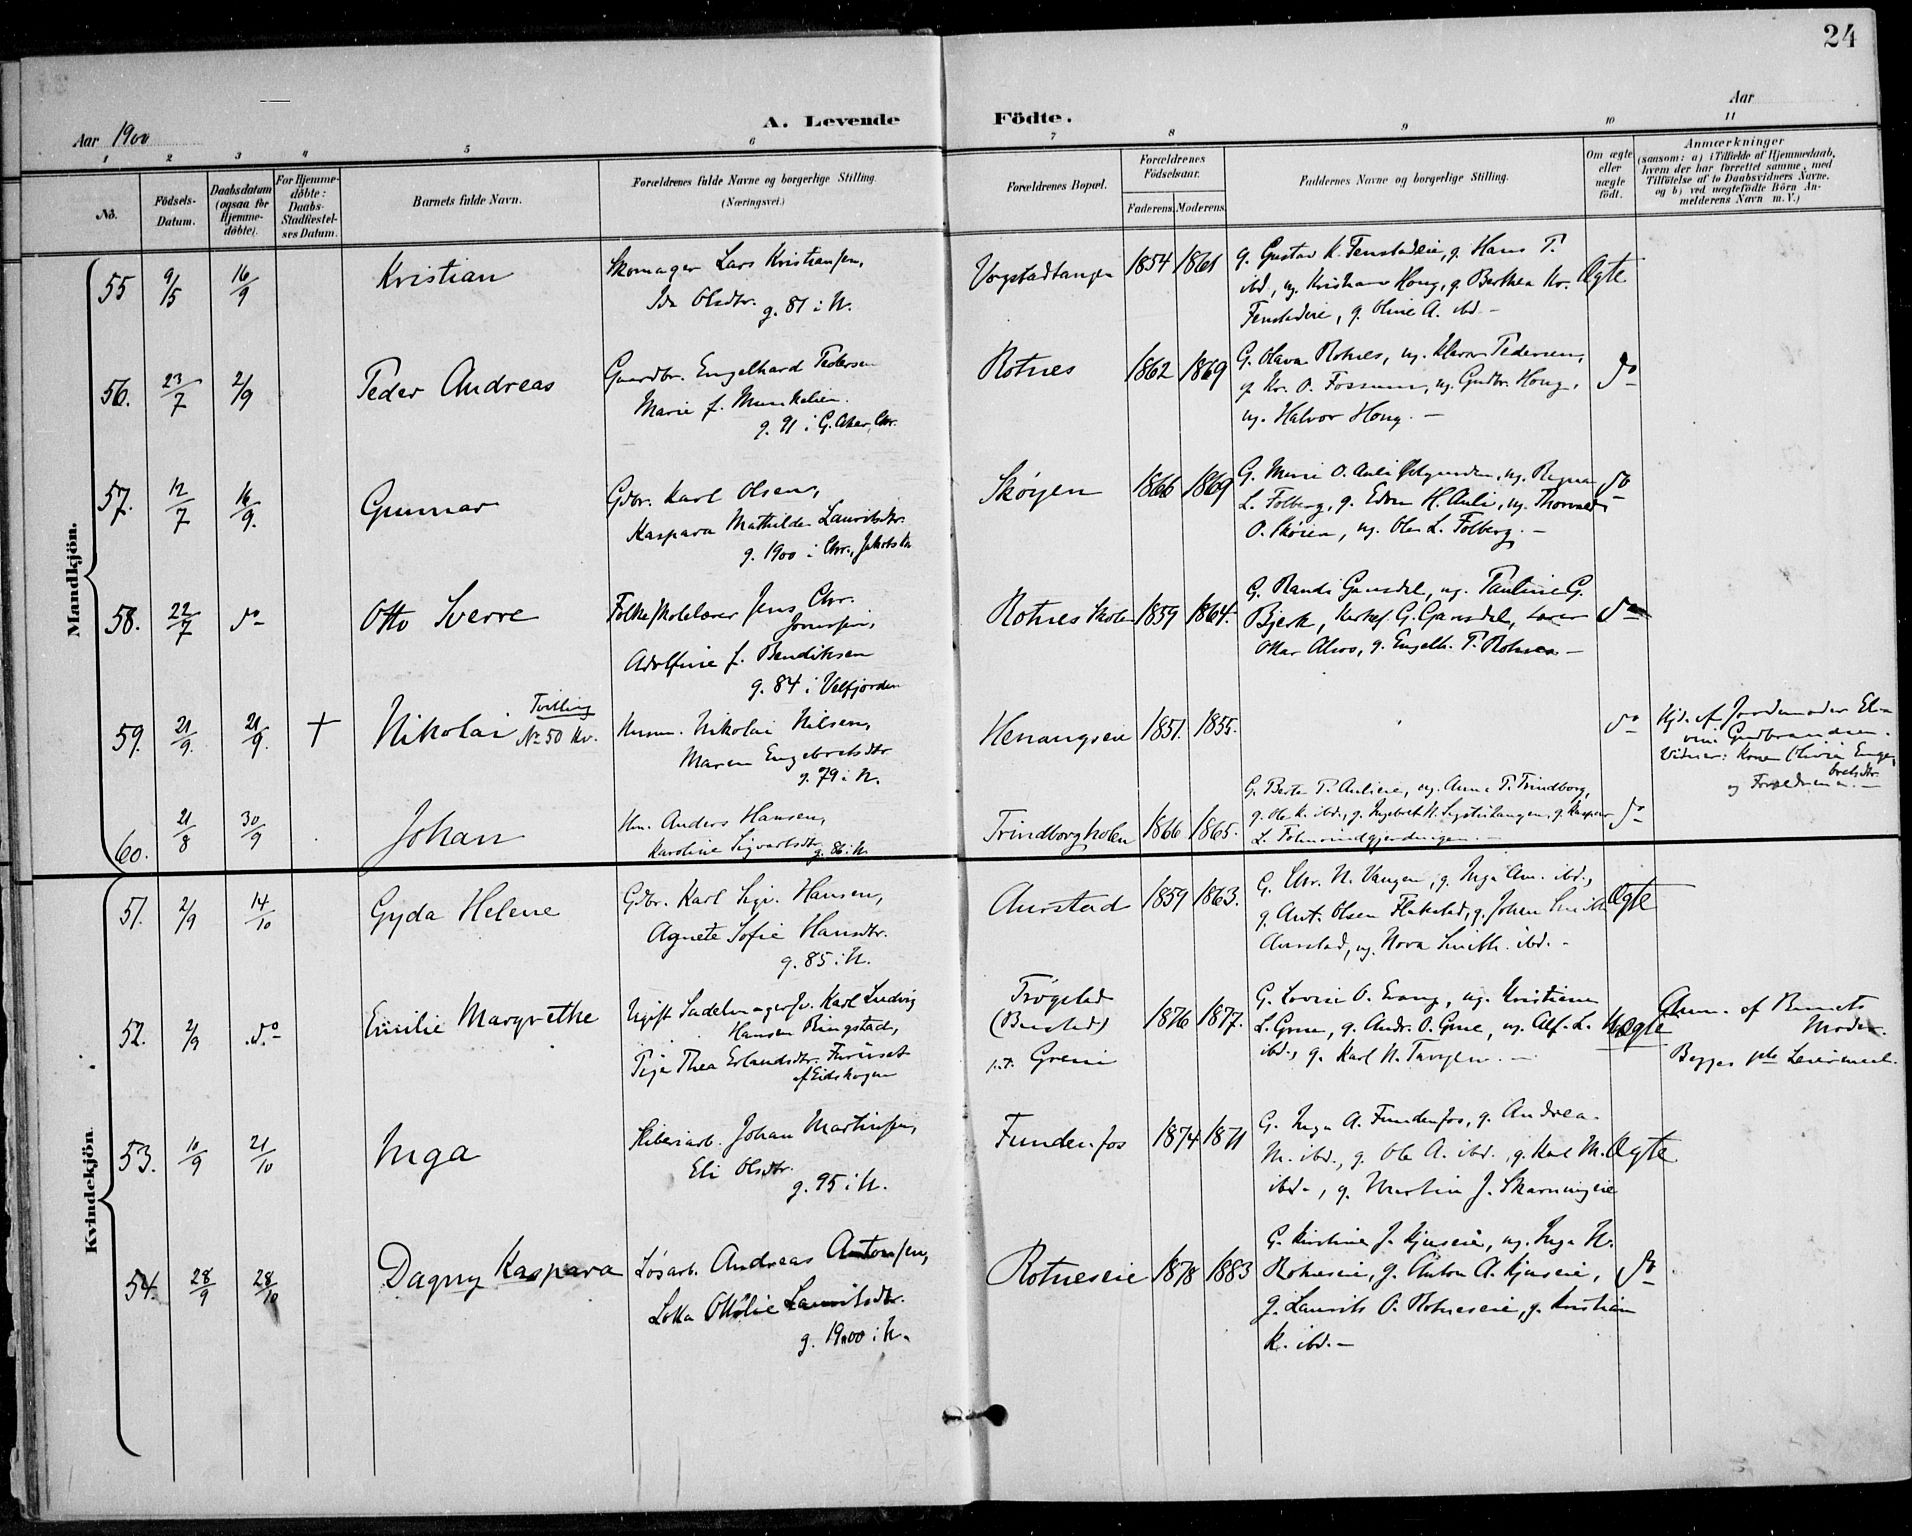 24
Aar 1900
A. Levende Födte.
Aar
1 2 3 4 5 6 7 8 9 10 11
No.
Födsels-Datum.
Daabsdatum (ogsaa for Hjemmedöbte).
For Hjemmedöbte: Daabs-Stadfæstelses Datum.
Barnets fulde Navn.
Forældrenes fulde Navne og borgerlige Stilling.
(Næringsvei.)
Forældrenes Bopæl.
Forældrenes Födselsaar.
Faderens. Moderens.
Faddernes Navne og borgerlige Stilling.
Om ægte eller uægte födt.
Anmærkninger
(saasom: a) i Tilfælde af Hjemmedaab, hvem der har forrettet samme, med Tilföielse af to Daabsvidners Navne, og b) ved uægtefödte Börn Anmelderens Navn m. V.)
Mandkjön.
55 9/5 16/9 Kristian
Skomager Lars Kristiansen,
Ida Olsdtr.
g. 81 i N.
1854 1861
g. Gustav K. Fenstadeie, g. Hans T.
ibd., ug. Kristian Hong, g. Berthea Kr.
Fenstadeie, g. Oline A. ibd. -
Ægte
56. 23/7 2/9 Peder Andreas
Gaardbr. Engelhard Pedersen
Marie f. Munkelien.
g. 91 i G. Aker, Chr.
Rotnes 1862 1869
G. Olava Rotnes, ug. Klara Pedersen,
g. Kr. O. Fossum, ug. Gudbr. Hong,
ug. Halvor Hong. -
do
57. 12/7 16/9. Gunnar
Gdbr. Karl Olsen,
Kaspara Mathilde Lauritsdtr.
g. 1900 i Chr., Jakobs K.
Skøyen 1866 1869
L. Folberg, g. Edv. H. Auli, ug. Thorvald
O. Skøien, ug. Ole L. Folberg. -
do
58. 22/7 do Otto Sverre
Folkeskolelærer Jens Chr.
Jonassen,
Adolfine f. Bendiksen
g. 84 i Velfjorden
Rotnes Skole 1859 1864.
G. Randi Gansdal, ug. Pauline G.
Bjerk, Kirkes. G. Gansdal, Lærer
g. Engelh. P. Rotnes -
do
59. 21/9. 21/9. + Nikolai Tvilling
No 50 Kv.
Husm. Nikolai Nilsen,
Maren Engebretsdtr
g. 79 i N.
Henangseie 1851. 1855.
do
Hjd. af Jordemoder
Gudbrandsen.
Vidner: Kone Olivia Engebretsdtr.
og Forældrene. -
60. 21/8 30/9 Johan
Hm. Anders Hansen,
Karoline Sigvartsdtr g. 86 i N.
Trindborgholen 1866 1865.
G. Berte P. Aulieie, ug. Anna P. Trindborg,
g. Ole K. ibd.,
do
Kvindekjön
51. 2/9 14/10 Gyda Helene
Gdbr. Karl Sigv. Hansen,
Agnete Sofie Hansdtr.
g. 85 i N.
Aurstad 1859 1863.
G. Chr. N. Vangen, g. Inga Am. ibd.,
g. Ant. Olsen Flakstad, g. Johan Smith
Aurstad, ug. Nora Smith ibd. -
Ægte
52. 2/9 do Emilie Margrethe
Ugift Sadelmagersv. Karl Ludvig
Hansen Ringstad,
Pige Thea Erlandsdtr. Furuset
af Eidskogen
Trøgstad
(Baastad)
p.t. Greni
1876 1877.
G. Lovise O. Evang, ug. Kristiane
L. Grue, g. Andr. O. Grue, ug. Alf. L.
ibd., g. Karl N. -
Uægte
Anm. af Barnets
Moder.
Begges 1ste Leiermaal.
53. 10/9 21/10 Inga
Sliberiarb. Johan Martinsen,
Eli Olsdtr.
g. 95 i N.
Fundenfos 1874 1871
G. Inga A. Fundenfos, g. Andrea
M. ibd., g. Ole A. ibd., g. Karl M.
ibd., g. Martin J. Skarningeie
Ægte
54. 28/9 28/10 Dagny Kaspara
Løsarb. Andreas Antonsen,
Lotta Ottilie Lauritsdtr.
g. 1900 i N.
Rotneseie 1878 1883
G. Kirstine J. Kjuseie, ug. Inga N.
Rotneseie, g. Anton A. Kjuseie,
g. Laurits O. Rotneseie, g. Kristian
K. ibd. -
do